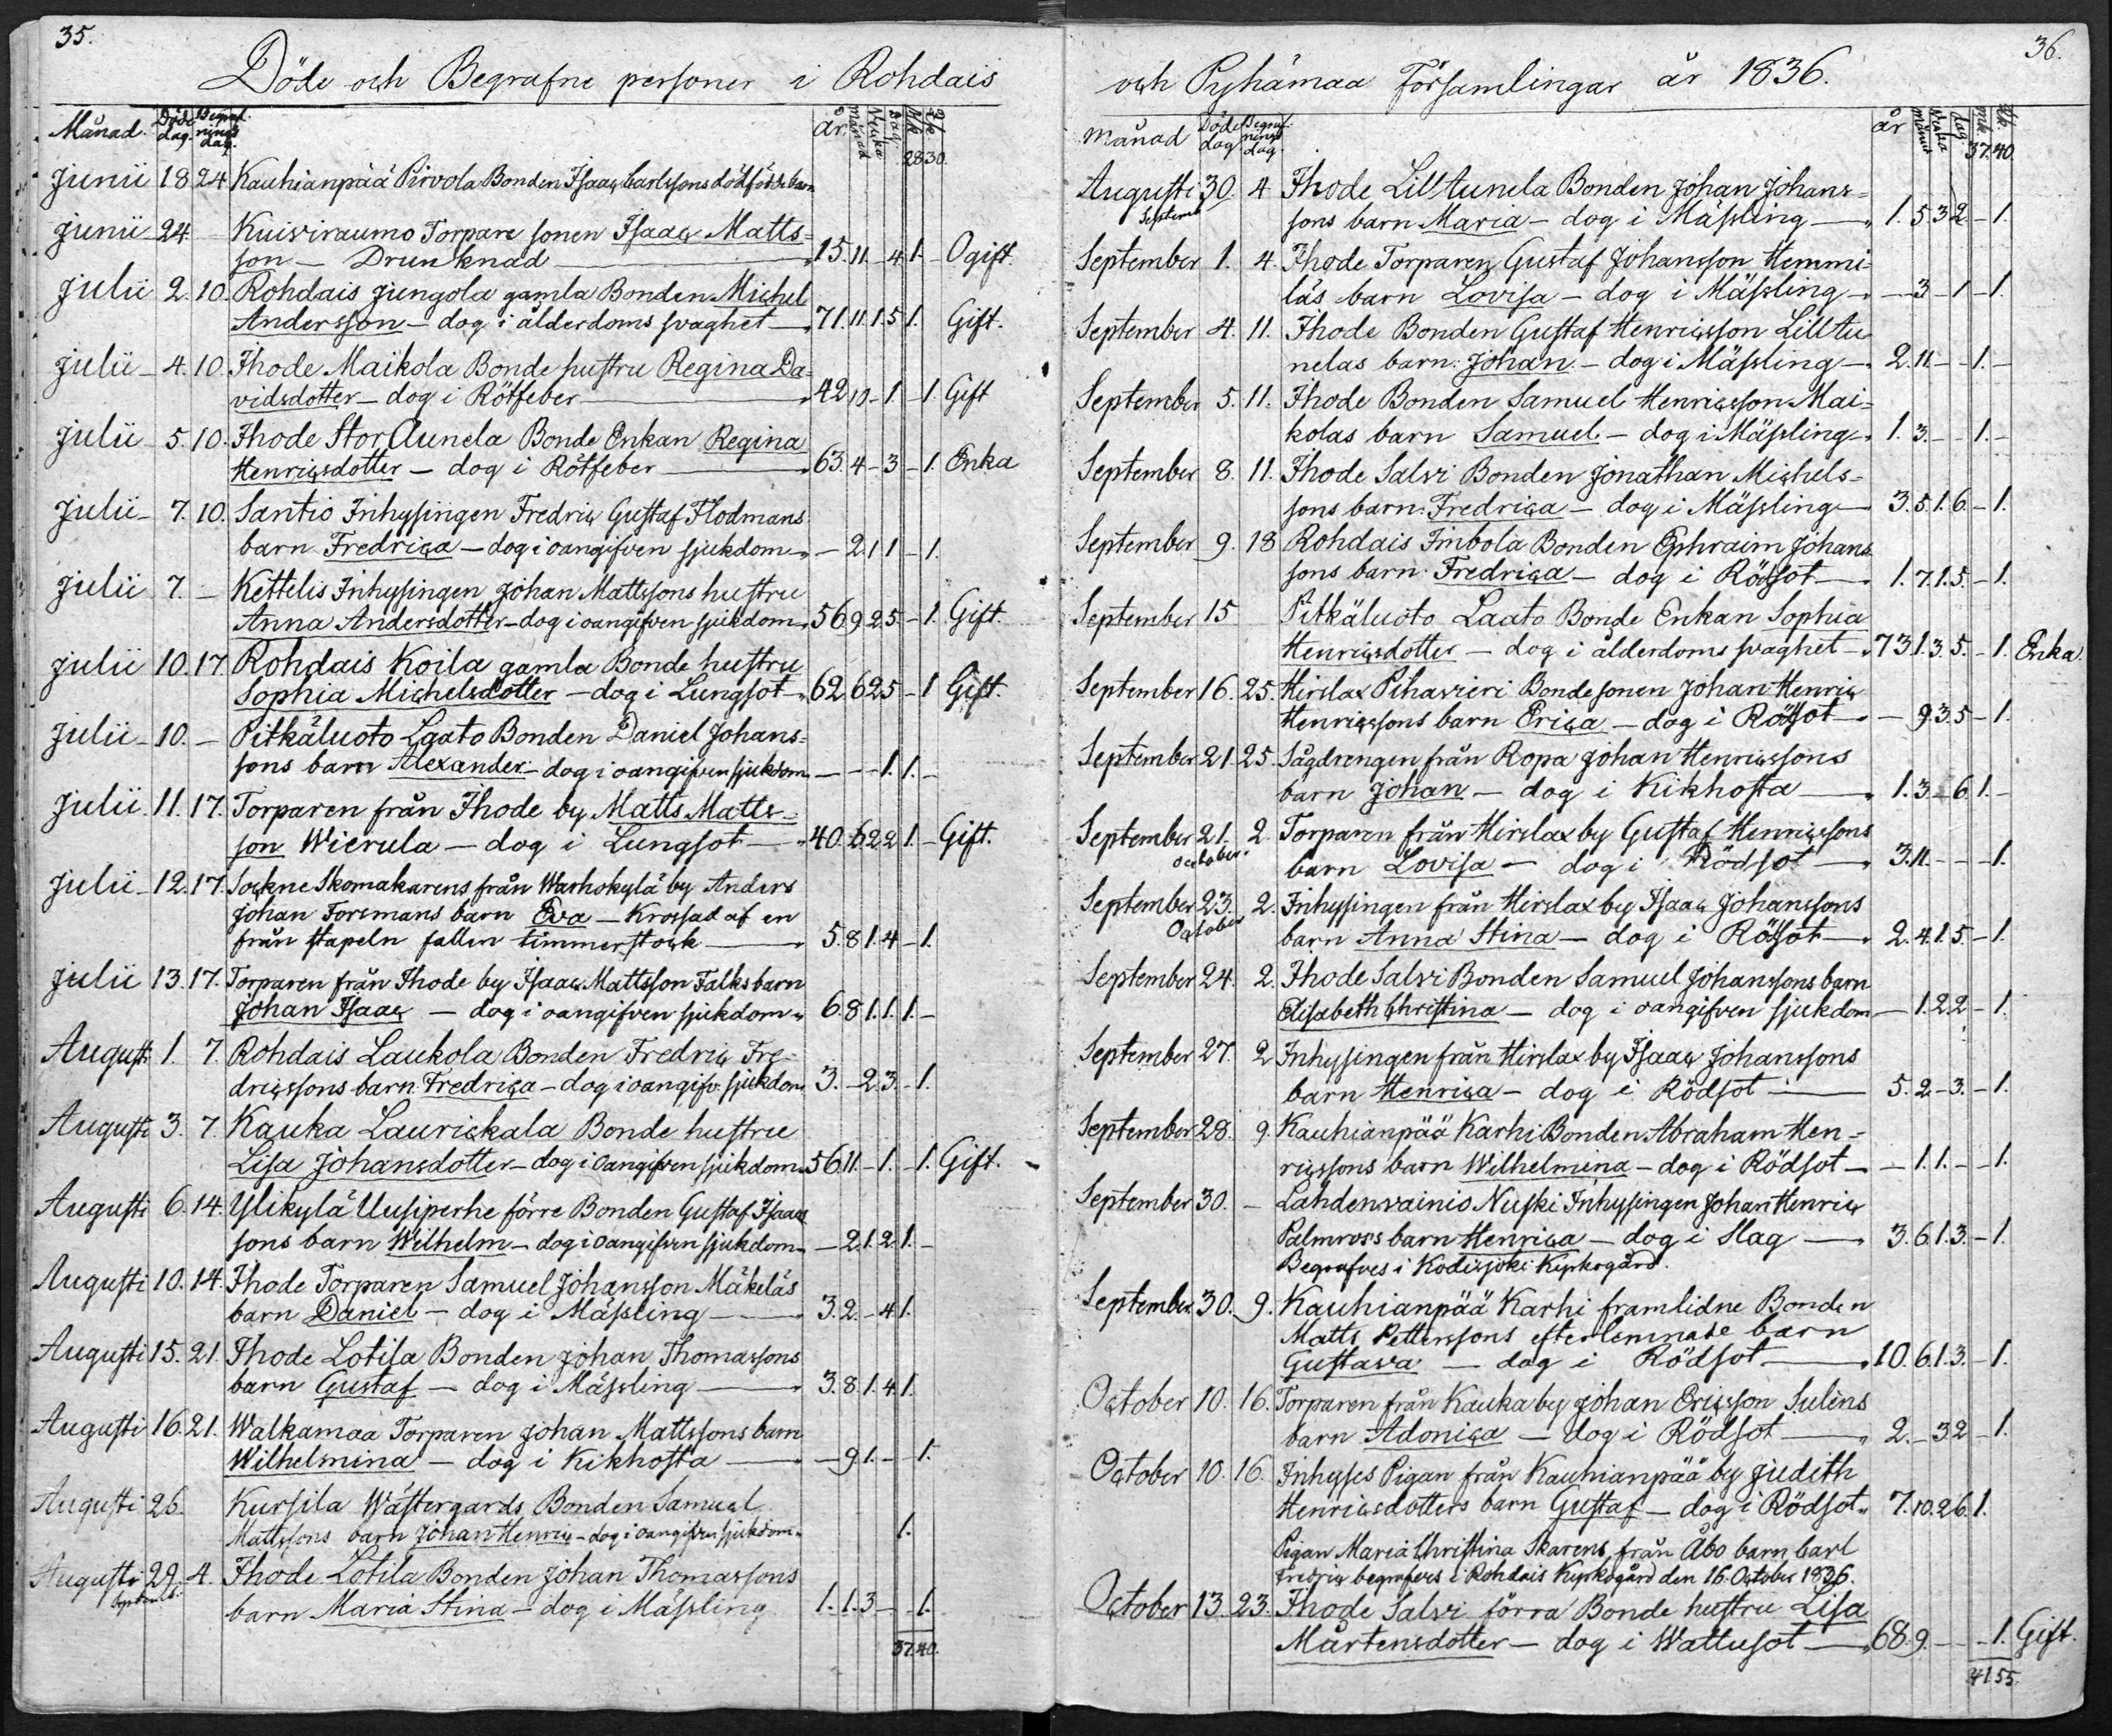 35.
Döde och Begrafne personer i Rohdais
Månad. Döde dag. Begraf-nings dag. år. Månad Vecka Dag Mk Qk
28 30.
Junii 18 24 Kauhianpää Pirvola Bonden Isaac Carlssons dödfödde barn
Junii 24 Kuiviraumo Torpare sonen Isaac Matts-
son — Drunknad — 15. 11. — 4. 1. — Ogift.
Julii 2. 10. Rohdais Jungola gamla Bonden Michel
Andersson — dog i ålderdoms svaghet — 71. 11. 1. 5 1. Gift.
Julii 4. 10. Ihode Maikola Bonde hustru Regina Da-
vidsdotter — dog i Rötfeber — 42 10 — 1 — 1. Gift
Julii 5. 10. Ihode Stor Aunela Bonde Enkan Regina
Henricsdotter — dog i Rötfeber — 63. 4 — 3 — 1. Enka
Julii 7. 10. Santio Inhysingen Fredric Gustaf Flodmans
barn Fredrica — dog i oangifven sjukdom — 2 1 1 — 1.
Julii 7. — Kettelis Inhysingen Johan Mattssons hustru
Anna Andersdotter — dog i oangifven sjukdom 56 9 2 5 — 1. Gift.
Julii 10. 17. Rohdais Koila gamla Bonde hustru
Sophia Michelsdotter — dog i Lungsot — 62. 6 2 5 — 1 Gift.
Julii 10. — Pitkäluoto Laato Bonden Daniel Johans-
sons barn Alexander — dog i oangifven sjukdom — — — 1. 1. —
Julii 11. 17. Torparen från Ihode by Matts Matts-
son Wierula — dog i Lungsot — 40. 6 2 2 1. — Gift.
Julii 12. 17. Sockne Skomakarens från Warhokylä by Anders
Johan Forsmans barn Eva — Krossad af en
från stapeln fallen timmerstock — 5. 8 1. 4 — 1.
Julii 13. 17. Torparen från Ihode by Isaac Mattsson Falks barn
Johan Isaac — dog i oangifven sjukdom 6. 8 1. 1. 1. —
August 1. 7. Rohdais Laukola Bonden Fredric Fre-
dricssons barn Fredrica — dog i oangifv. sjukdom 3. — 2 3. — 1.
Augusti 3. 7. Kauka Laurickala Bonde hustru
Lisa Johansdotter — dog i oangifven sjukdom 56. 11. — 1. — 1. Gift.
Augusti 6. 14. Ylikylä Uusiperhe förre Bonden Gustaf Isaacs
sons barn Wilhelm — dog i oangifven sjukdom — 2 1. 2 1. —
Augusti 10. 14. Ihode Torparen Samuel Johansson Mäkeläs
barn Daniel — dog i Mässling — 3. 2. — 4 1.
Augusti 15. 21. Ihode Lotila Bonden Johan Thomassons
barn Gustaf — dog i Mässling — 3. 8. 1. 4. 1.
Augusti 16. 21. Walkamaa Torparen Johan Mattssons barn
Wilhelmina — dog i Kikhosta — — 9 1. — — 1.
Augusti 26. Kursila Wästergards Bonden Samuel
Mattssons barn Johan Henric — dog i oangifven sjukdom 1.
Augusti 29. 4. Ihode Lotila Bonden Johan Thomassons
Septemb. barn Maria Stina — dog i Mässling 1. 1. 3 — — 1.
37. 40.
36.
och Pyhämaa Församlingar år 1836.
Månad Döde dag Begraf-nings dag. år Månad Vecka dag mk Qk
37. 40.
Augusti 30. 4 Ihode Lill Aunela Bonden Johan Johans-
Septemb. sons barn Maria — dog i Mässling — 1. 5 3 2 — 1.
September 1. 4. Ihode Torparen Gustaf Johansson Hemmi-
läs barn Lovisa — dog i Mässling — — 3 — 1 — 1.
September 4. 11. Ihode Bonden Gustaf Henricsson Lill Au-
nelas barn Johan — dog i Mässling — 2. 11. — — 1. —
September 5. 11. Ihode Bonden Samuel Henricsson Mai-
kolas barn Samuel — dog i Mässling — 1. 3. — — 1. —
September 8. 11. Ihode Salvi Bonden Jonathan Michels-
sons barn Fredrica — dog i Mässling — 3. 5. 1. 6. — 1.
September 9. 18 Rohdais Imbola Bonden Ephraim Johans
sons barn Fredrica — dog i Rödsot — 1. 7. 1. 5. — 1.
September 15 Pitkäluoto Laato Bonde Enkan Sophia
Henricsdotter — dog i ålderdoms svaghet — 73 1. 3. 5. — 1. Enka.
September 16. 25. Hirslax Pihavieri Bondesonen Johan Henric
Henricssons barn Erica — dog i Rödsot — — 9. 3. 5 — 1.
September 21. 25. Sågdrengen från Ropa Johan Henricssons
barn Johan — dog i Kikhosta — 1. 3 — 6 1. —
September 21. 2 Torparen från Hirslax by Gustaf Henricssons
October. barn Lovisa — dog i Rödsot — 3. 11. — — — 1.
September 23. 2. Inhysingen från Hirslax by Isaac Johanssons
October barn Anna Stina — dog i Rödsot — 2. 4. 1. 5. — 1.
September 24. 2. Ihode Salvi Bonden Samuel Johanssons barn
Elisabeth Christina — dog i oangifven sjukdom — 1. 2 2 — 1.
September 27. 2 Inhysingen från Hirslax by Isaac Johanssons
barn Henrica — dog i Rödsot — 5. 2. — 3. — 1.
September 28. 9. Kauhianpää Karhi Bonden Abraham Hen-
ricssons barn Wilhelmina — dog i Rödsot — — 1. 1. — — 1.
September 30. — Lahdenvainio Nuski Inhysingen Johan Henric
Palmross barn Henrica — dog i Slag — 3. 6. 1. 3. — 1.
Begrafves i Kodisjoki Kyrkogård.
September. 30. 9. Kauhianpää Karhi framlidne Bonden
Matts Petterssons efterlemnade barn
Gustava — dog i Rödsot — 10. 6. 1. 3. — 1.
October 10. 16. Torparen från Kauka by Johan Ericsson Sulins
barn Adonica — dog i Rödsot — 2. — 3 2 — 1.
October 10. 16. Inhyses Pigan från Kauhianpää by Judith
Henricsdotters barn Gustaf — dog i Rödsot 7. 10. 2 6. 1.
Pigan Maria Christina Skarens från Åbo barn Carl
Fredric begrafves i Rohdais Kyrkogård den 16. October 1836.
October 13. 23. Ihode Salvi förra Bonde hustru Lisa
Mårtensdotter — dog i Wattusot — 68. 9. — — — 1. Gift.
41. 55.